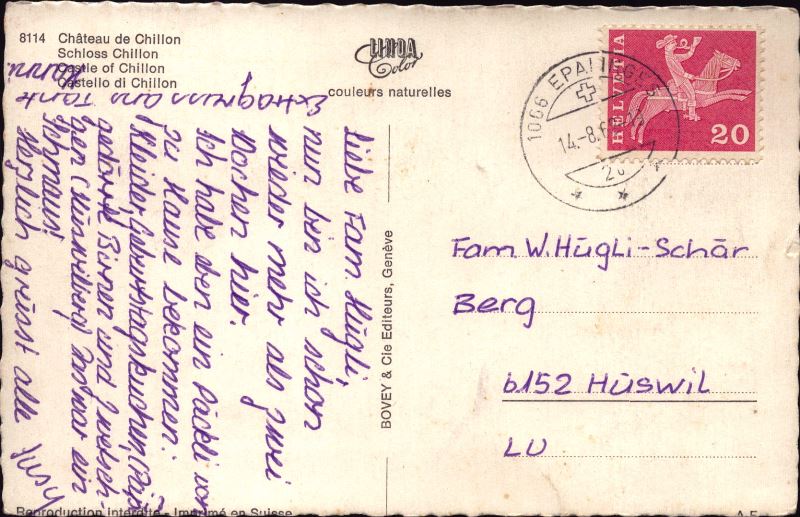 8114 Château de Chillon
Schloss Chillon
Castle of Chillon
Castello di Chillon
LINDA
Color
couleurs naturelles
1066 EPALINGES
14.-8.
HELVETIA
20
Extragruss ans Tante
Liebe Fam Hügli,
nun bin ich schon
wieder mehr als zwei
Wochen hier.
Ich habe den ein Päckli von
zu Hause bekommen:
Kleider, Geburtstagskuchen,
gedörrte Birnen und Zwetsch-
gen (Hüswiliberg) das war ein
Schmaus!
Herzlich grüsst alle
BOVEY & Cie Editeurs, Genève
Fam W. Hügli-Schär
Berg
6152 Hüswil
LU
Reproduction interdite - Imprimé en Suisse